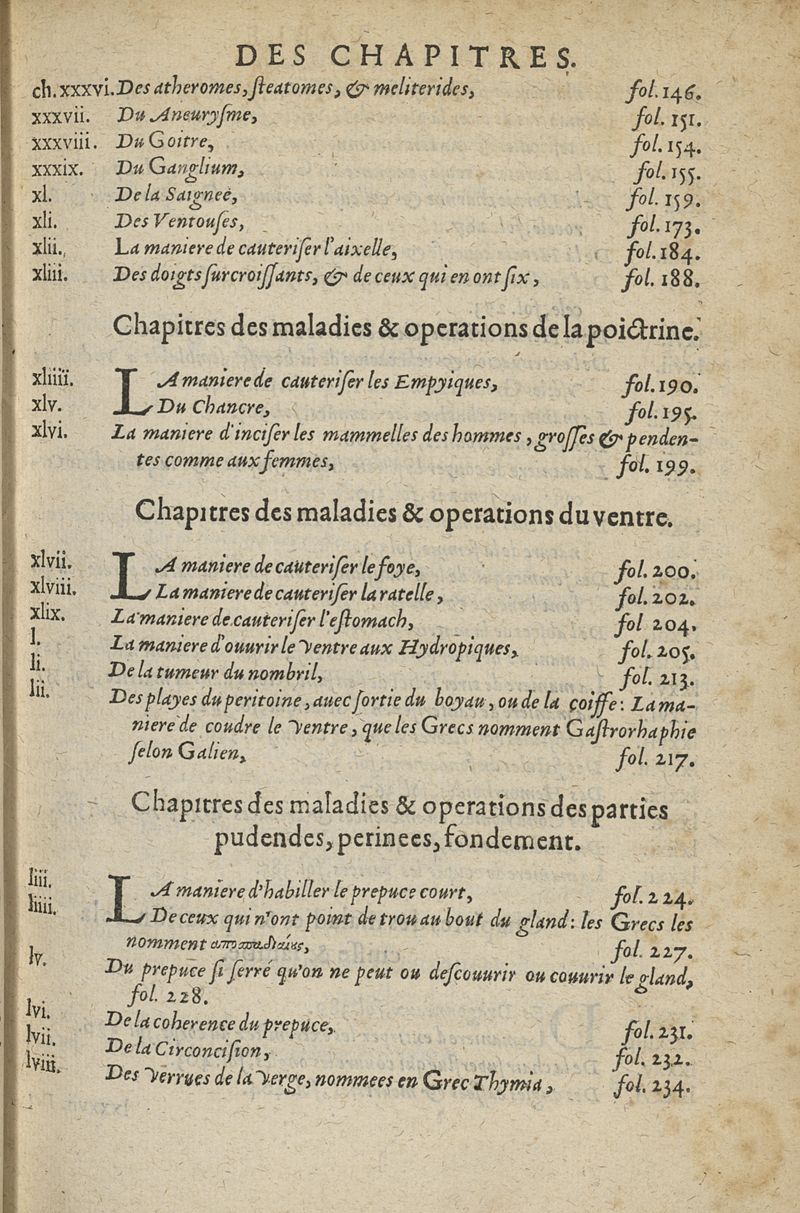 DES CHAPITRES.
ch.xxxvi. Des atheromes, ſteatomes, & meliterides, fol. 146.
xxxvii. Du Aneuryſme, fol. 151.
xxxviii. Du Goitre, fol. 154.
xxxix. Du Ganglium, fol. 155.
xl. De la Saigneé, fol. 159.
xli. Des Ventouſes, fol. 173.
xlii. La maniere de cauteriſer l'aixelle, fol. 184.
xliii. Des doigts ſurcroiſſants, & de ceux qui en ont ſix, fol. 188.
Chapitres des maladies & operations de la poictrine.
xliiii. LA maniere de cauteriſer les Empyiques, fol. 190.
xlv. Du Chancre, fol. 195.
xlvi. La maniere d'inciſer les mammelles des hommes, groſſes & penden-
tes comme aux femmes, fol. 199.
Chapitres des maladies & operations du ventre.
xlvii. LA maniere de cauteriſer le foye, fol. 200.
xlviii. La maniere de cauteriſer la ratelle, fol. 202.
xlix. La maniere de cauteriſer l'eſtomach, fol 204.
l. La maniere d'ouurir le Ventre aux Hydropiques, fol. 205.
li. De la tumeur du nombril, fol. 213.
lii. Des playes du peritoine, auec ſortie du boyau, ou de la coiffe: La ma-
niere de coudre le Ventre, que les Grecs nomment Gaſtrorhaphie
ſelon Galien, fol. 217.
Chapitres des maladies & operations des parties
pudendes, perinees, fondement.
liii. LA maniere d'habiller le prepuce court, fol. 224.
liiii. De ceux qui n'ont point de trou au bout du gland: les Grecs les
nomment fol. 227.
lv. Du prepuce ſi ſerré qu'on ne peut ou deſcouurir ou couurir le gland,
fol. 228.
lvi. De la coherence du prepuce, fol. 231.
lvii. De la Circonciſion, fol. 232.
lviii. Des Verrues de la Verge, nommees en Grec Thymia, fol. 234.